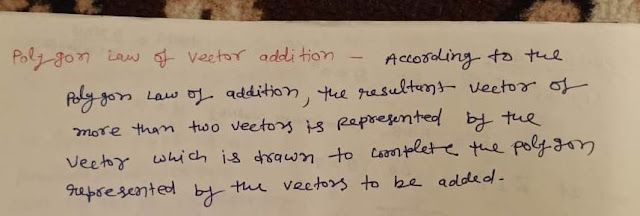 Polygon Law of Vector addition - According to the
Polygon Law of addition, the resultant vector of
more than two vectors is represented by the
vector which is drawn to complete the polygon
represented by the vectors to be added.